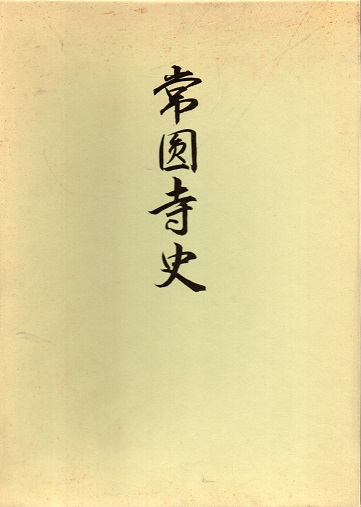 常圓寺史